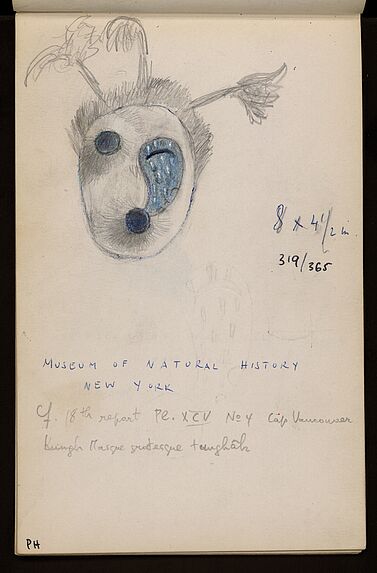 8 x 4 1/2 in.
319/365
MUSEUM OF NATURAL HISTORY
NEW YORK
Cf. 18th report PL. XCV No 4 Cap Vancouver
Masque grotesque
PH